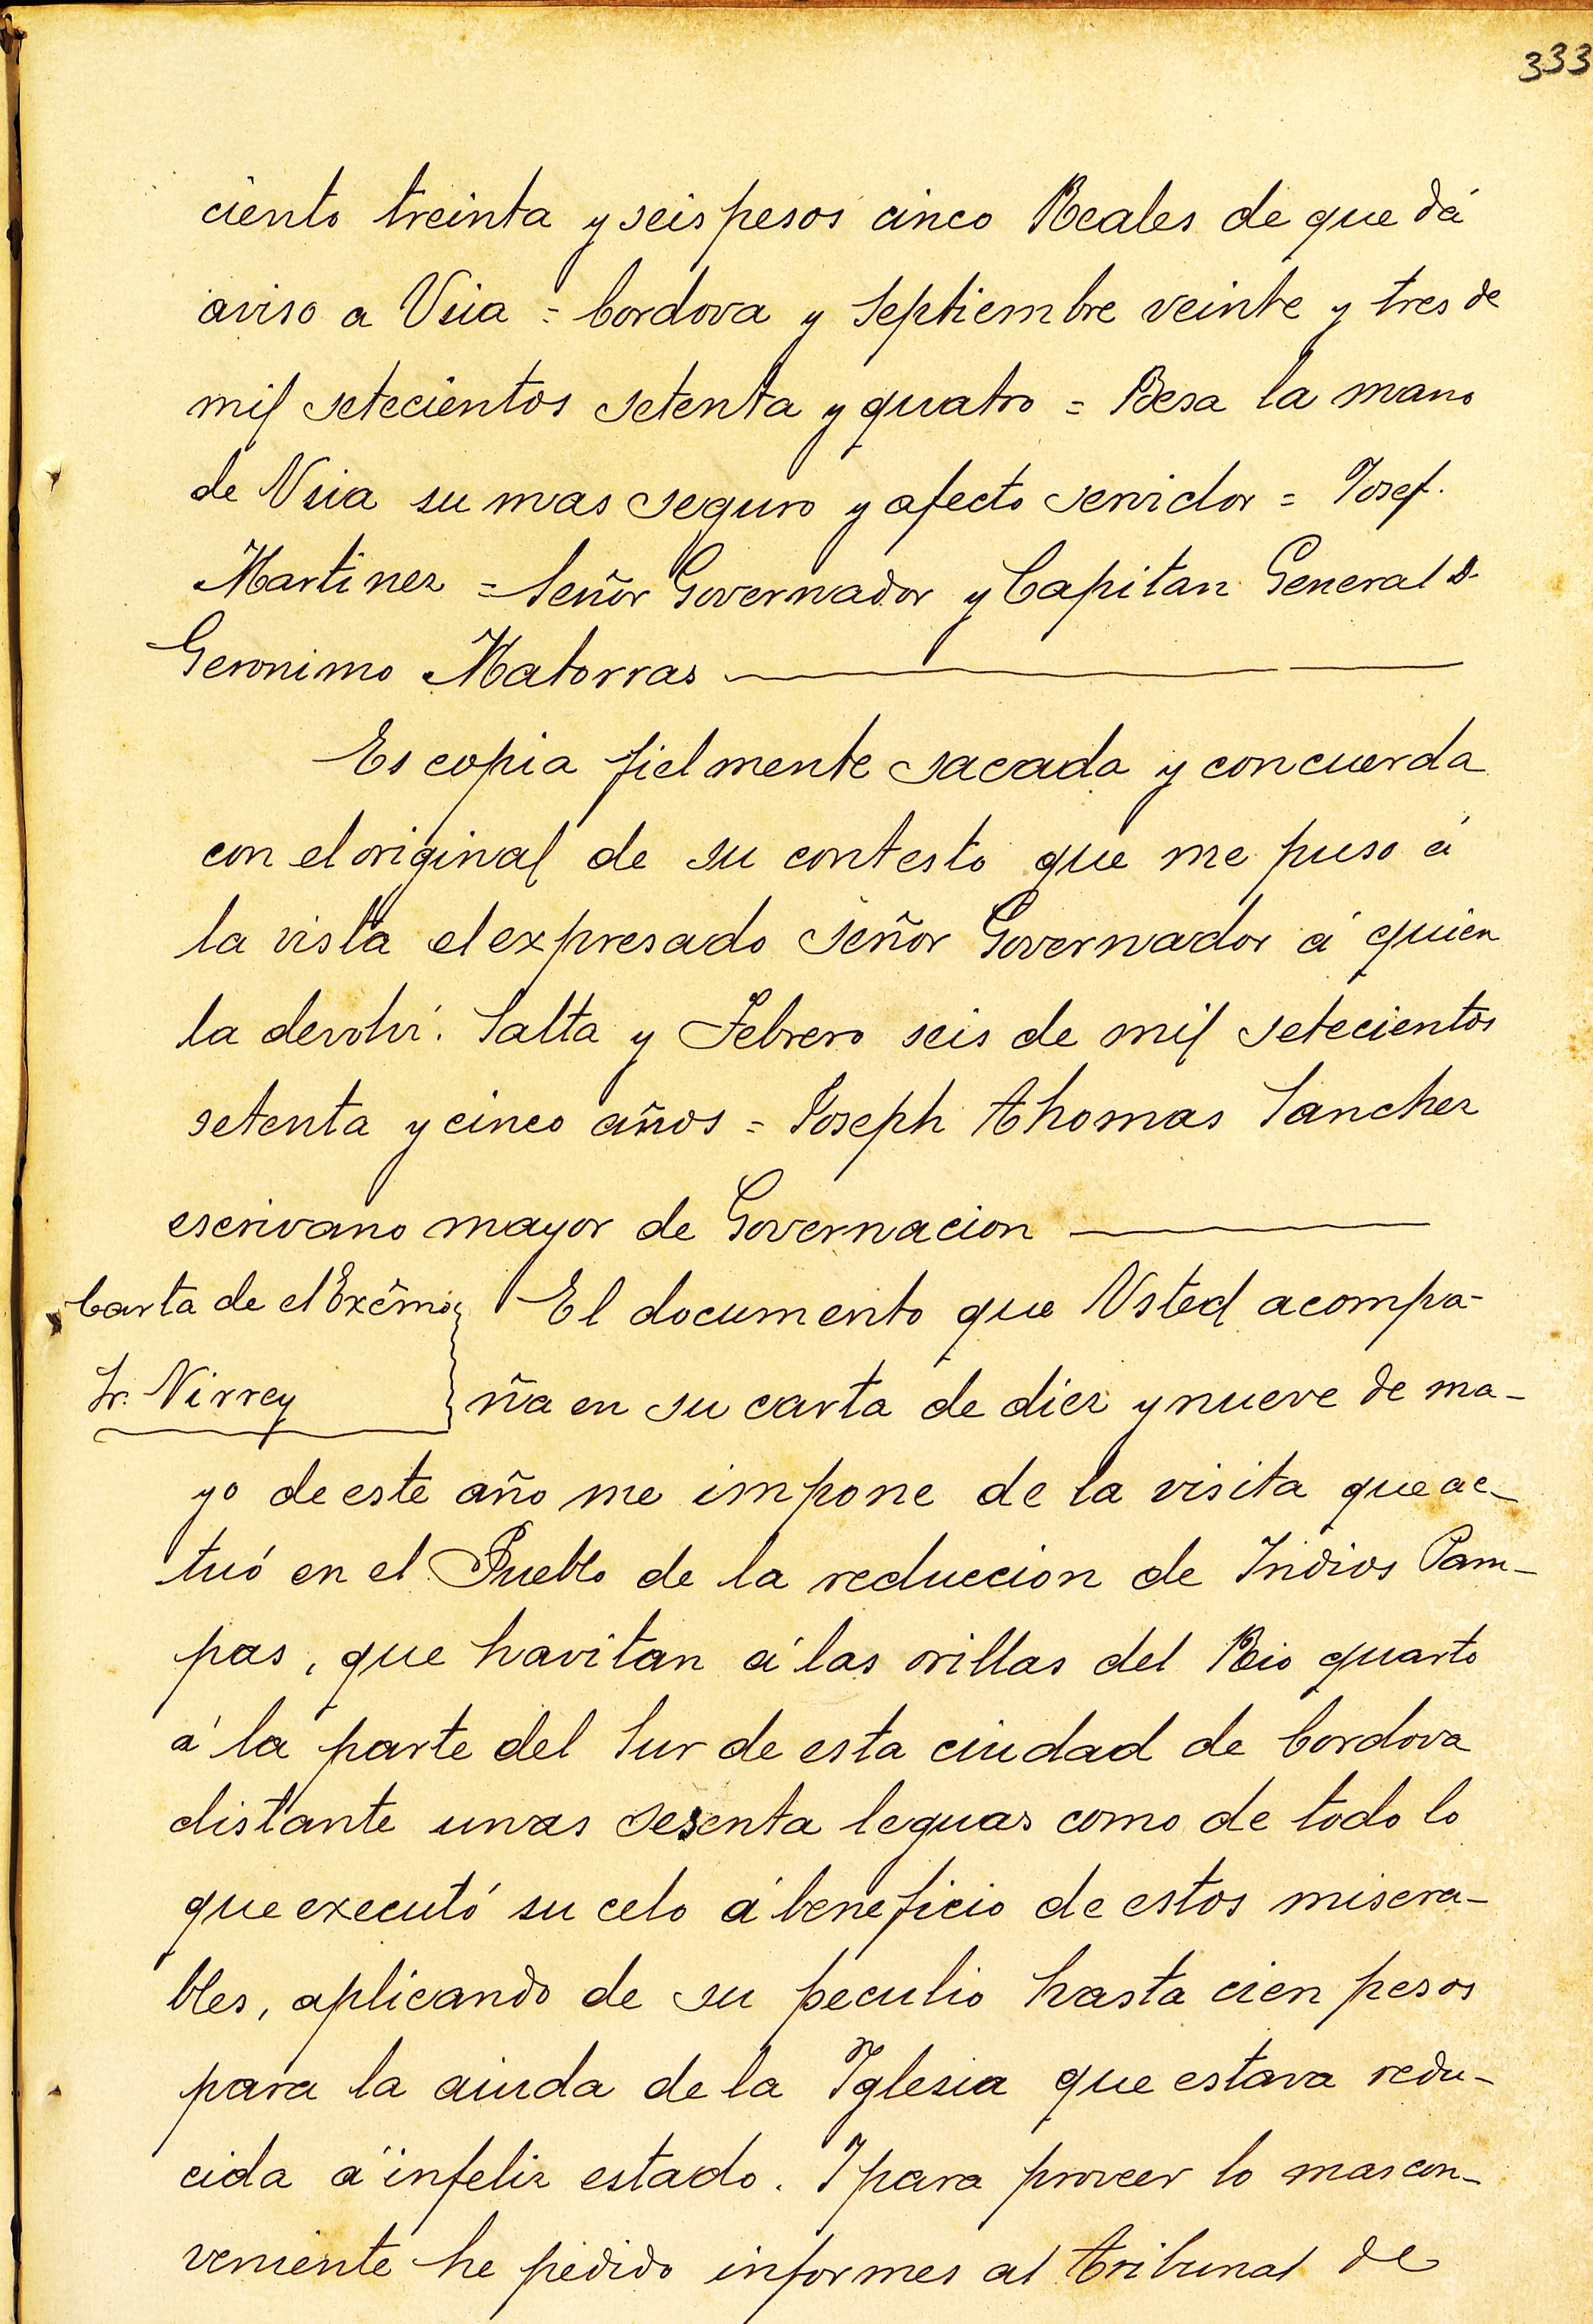 333
ciento treinta y seis pesos cinco Reales de que dá
aviso a Usia = Cordova y Septiembre veinte y tres de
mil setecientos setenta y quatro = Besa la mano
de Usia su mas seguro y afecto servidor = Josef.
Martinez = Señor Governador y Capitan General D.
Geronimo Matorras
Es copia fielmente sacada y concuerda
con el original de su contesto que me puso á
la vista el expresado Señor Governador á quien
la devolví. Salta y Febrero seis de mil setecientos
setenta y cinco años = Joseph Thomas Sanchez
escrivano mayor de Governacion
Carta de el Exĉmo
Sr. Virrey
El documento que Usted acompa-
ña en su carta de diez y nueve de ma-
yo de este año me impone de la visita que ac-
tuó en el Pueblo de la reduccion de Indios Pam-
pas, que havitan á las orillas del Rio quarto
á la parte del Sur de esta ciudad de Cordova
distante unas sesenta leguas como de todo lo
que executó su celo á beneficio de estos misera-
bles, aplicando de su peculio hasta cien pesos
para la aiuda de la Yglesia que estava redu-
cida á infeliz estado. Y para proveer lo mas con-
veniente he pedido informes al Tribunal de